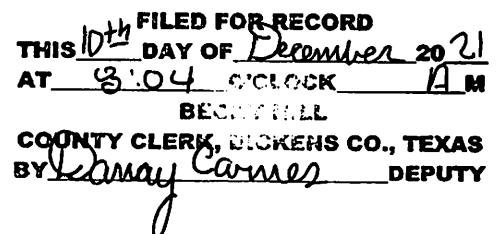 FILED FOR RECORD
THIS 10th DAY OF December 2021
AT 8:04 O'CLOCK A M
BECKY HILL
COUNTY CLERK, DICKENS CO., TEXAS
BY Danay Carnes DEPUTY